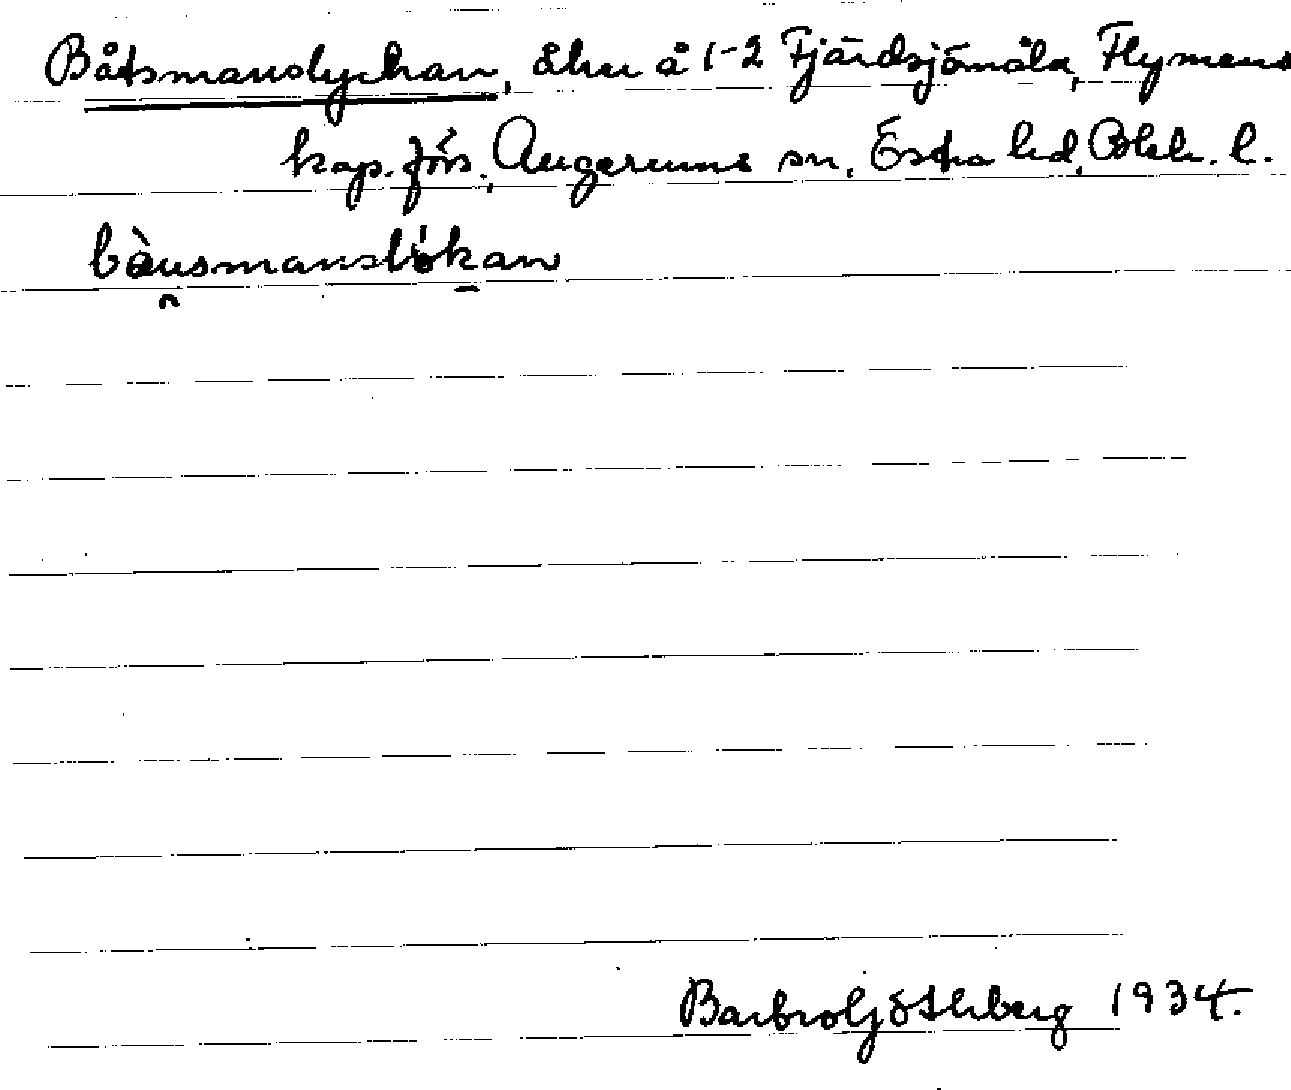 Båtsmanslyckan, åker å 1-2 Fjärdsjömåla, Flymens
kap. förs., Augerums sn, Östra hd, Blek. l.
bàusmanslökan
Barbro Götherberg 1934.